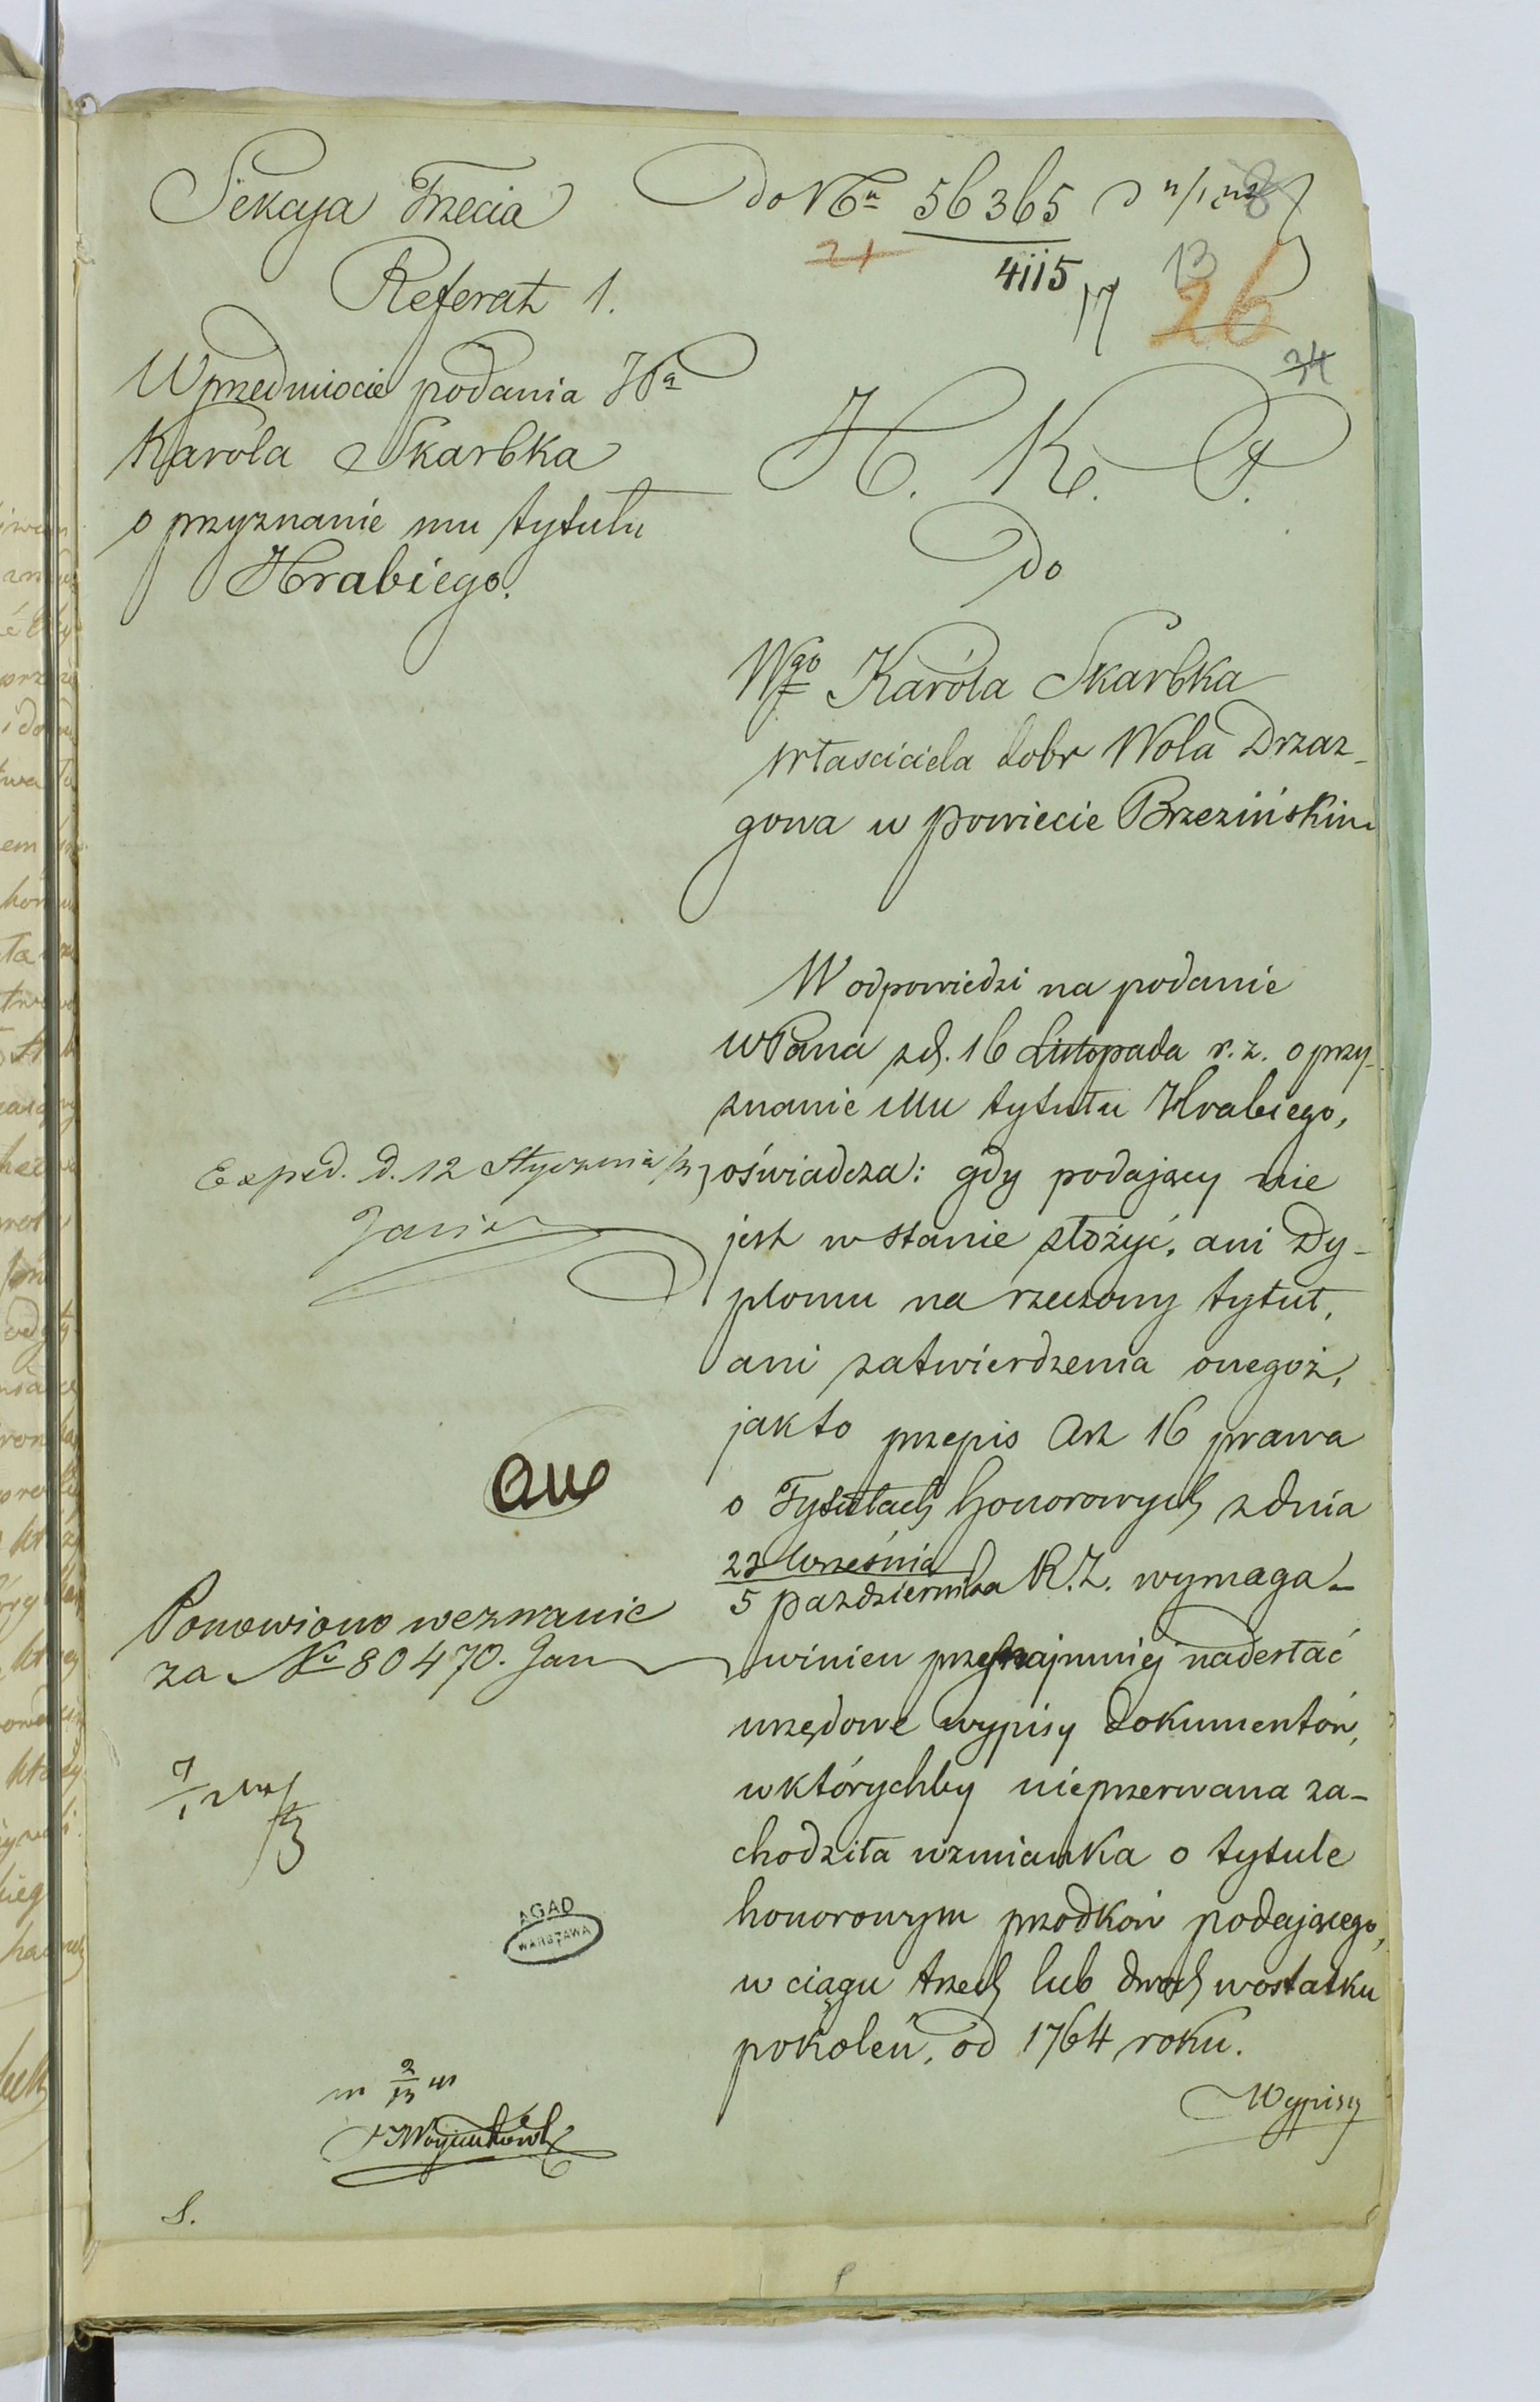 Sekcya Trzecia
Referat 1.
do Nru 56365
4115
21
17
13
26
34
W przedmiocie podania
Karola Skarbka
o przyznanie mu tytułu
Hrabiego.
H. K. P.
Do
Wgo Karóla Skarbka
własciciela dobr Wola Drzaz-
gowa w powiecie Brzezińskim
W odpowiedzi na podanie
WPana z d. 16 Listopada r. z. o przy-
znanie Mu tytułu Hrabiego,
oświadcza: gdy podający nie
jest w stanie złożyć, ani Dy-
plomu na rzeczony tytuł,
ani zatwierdzenia onegoż,
jak to przepis Art 16 prawa
o Tytułach honorowych z dnia
23 Września
5 października R. Z. wymaga –
winien przynajmniej nadesłać
urzędowe wypisy dokumentów,
w którychby nieprzerwana za-
chodziła wzmianka o tytule
honorowym przodków podającego,
w ciągu trzech lub dwoch w ostatku
pokoleń, od 1764 roku.
Wypisy
Exped. d. 12 Stycznia
Ponowiono wezwanie
za No 80470.
AGAD
WARSZAWA
S.